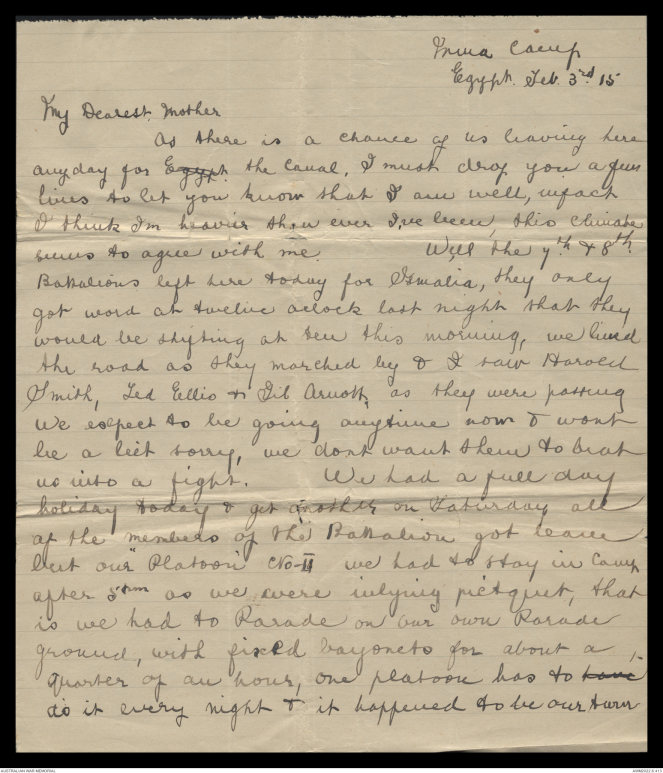 Camp
Egypt. Feb. 3rd 15
My Dearest Mother
As there is a chance of us leaving here
anyday for Egypt the Canal, I must drop you a few
lines to let you know that I am well, infact
I think I'm heavier than ever I've been, this climate
seems to agree with me. Well the 7th & 8th
Battalions left here today for Ismalia, they only
got word at twelve oclock last night that they
would be shifting at ten this morning, we lined
the road as they marched by & I saw Harold
Smith, Ted Ellis & Gil Arnott, as they were passing
We expect to be going anytime now & wont
be a bit sorry, we dont want them to beat
us into a fight. We had a full day
holiday today & get another on Saturday all
of the members of the Battalion got leave
but our "Platoon" No-II we had to stay in Camp
after 5pm as we were inlying picquet, that
is we had to Parade on our own Parade
ground, with fixed bayonets for about a
quarter of an hour, one platoon has to have
do it every night & it happened to be our turn
AUSTRALIAN WAR MEMORIAL